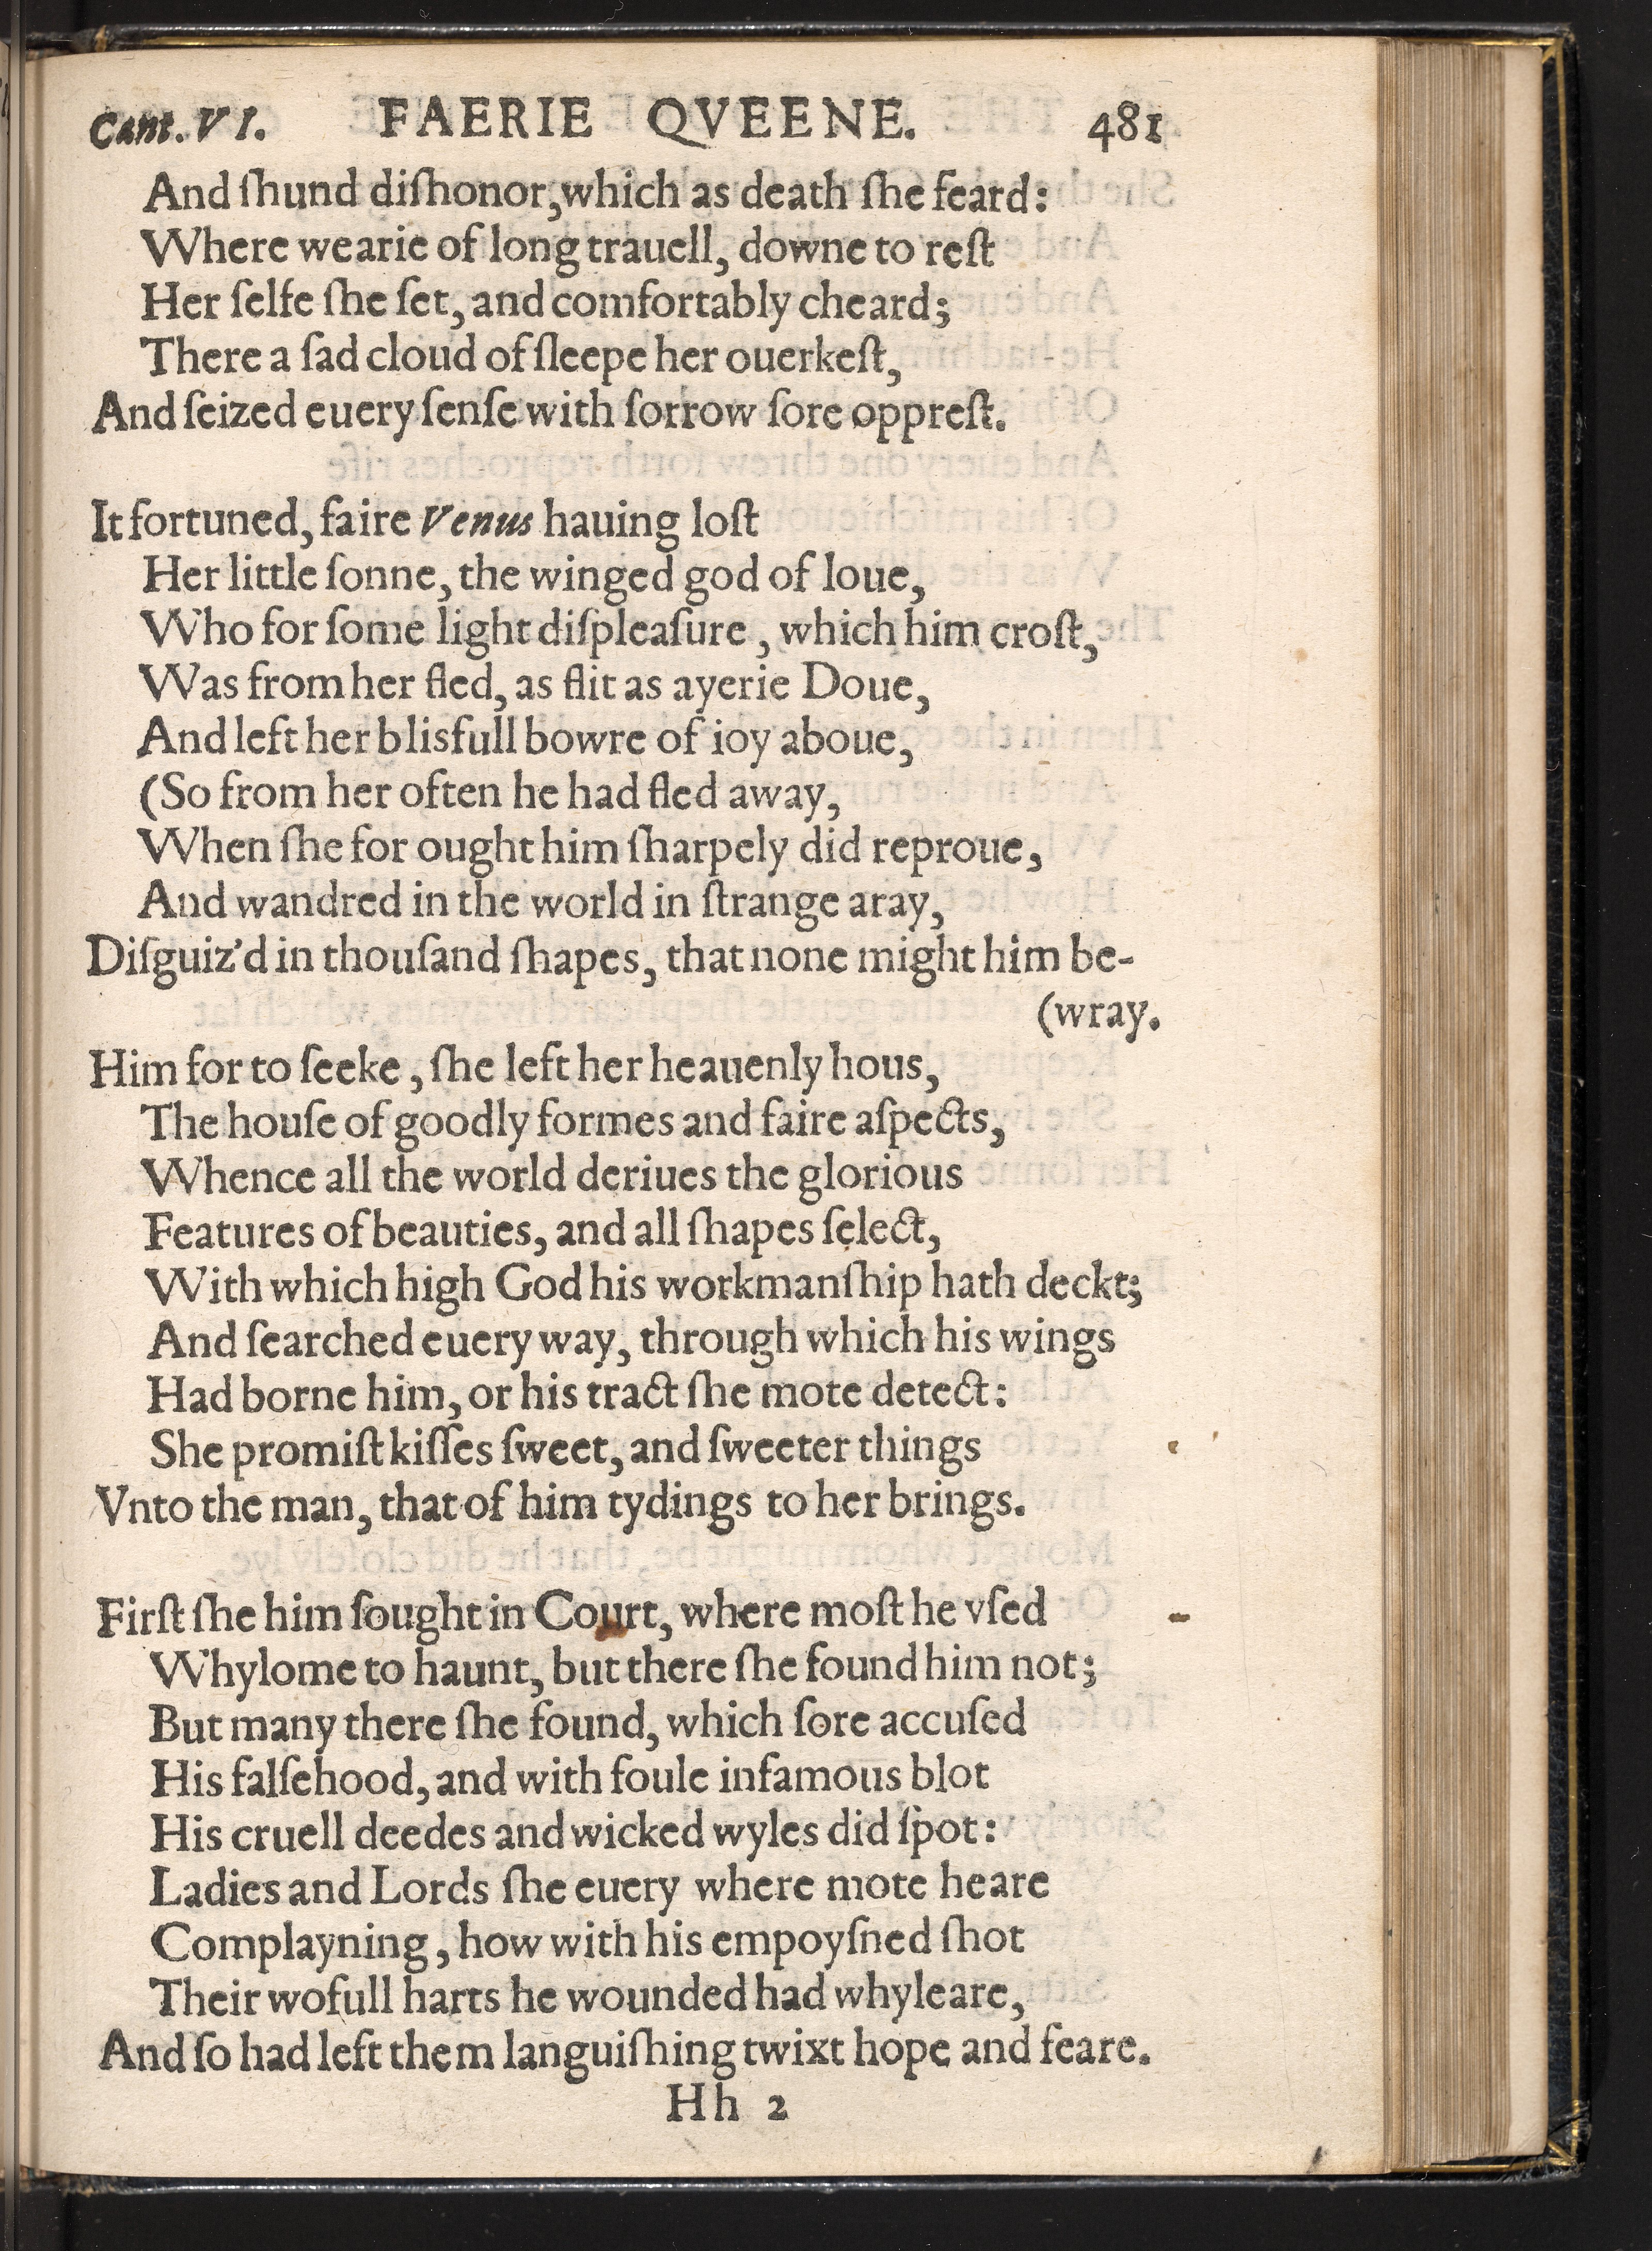 Cant. VI. FAERIE QVEENE. 481
And ſhund diſhonor, which as death ſhe feard:
Where wearie of long trauell, downe to reſt
Her ſelfe ſhe ſet, and comfortably cheard;
There a ſad cloud of ſleepe her ouerkeſt,
And ſeized euery ſenſe with ſorrow ſore oppreſt.
It fortuned, faire Venus hauing loſt
Her little ſonne, the winged god of loue,
Who for ſome light diſpleaſure, which him croſt,
Was from her fled, as flit as ayerie Doue,
And left her blisfull bowre of ioy aboue,
(So from her often he had fled away,
When ſhe for ought him ſharpely did reproue,
And wandred in the world in ſtrange aray,
Diſguiz'd in thouſand ſhapes, that none might him be-
(wray.
Him for to ſeeke, ſhe left her heauenly hous,
The houſe of goodly formes and faire aſpects,
Whence all the world deriues the glorious
Features of beauties, and all ſhapes ſelect,
With which high God his workmanſhip hath deckt;
And ſearched euery way, through which his wings
Had borne him, or his tract ſhe mote detect:
She promiſt kiſſes ſweet, and ſweeter things
Vnto the man, that of him tydings to her brings.
Firſt ſhe him ſought in Court, where moſt he vſed
Whylome to haunt, but there ſhe found him not;
But many there ſhe found, which ſore accuſed
His falſehood, and with foule infamous blot
His cruell deedes and wicked wyles did ſpot:
Ladies and Lords ſhe euery where mote heare
Complayning, how with his empoyſned ſhot
Their wofull harts he wounded had whyleare,
And ſo had left them languiſhing twixt hope and feare.
Hh 2